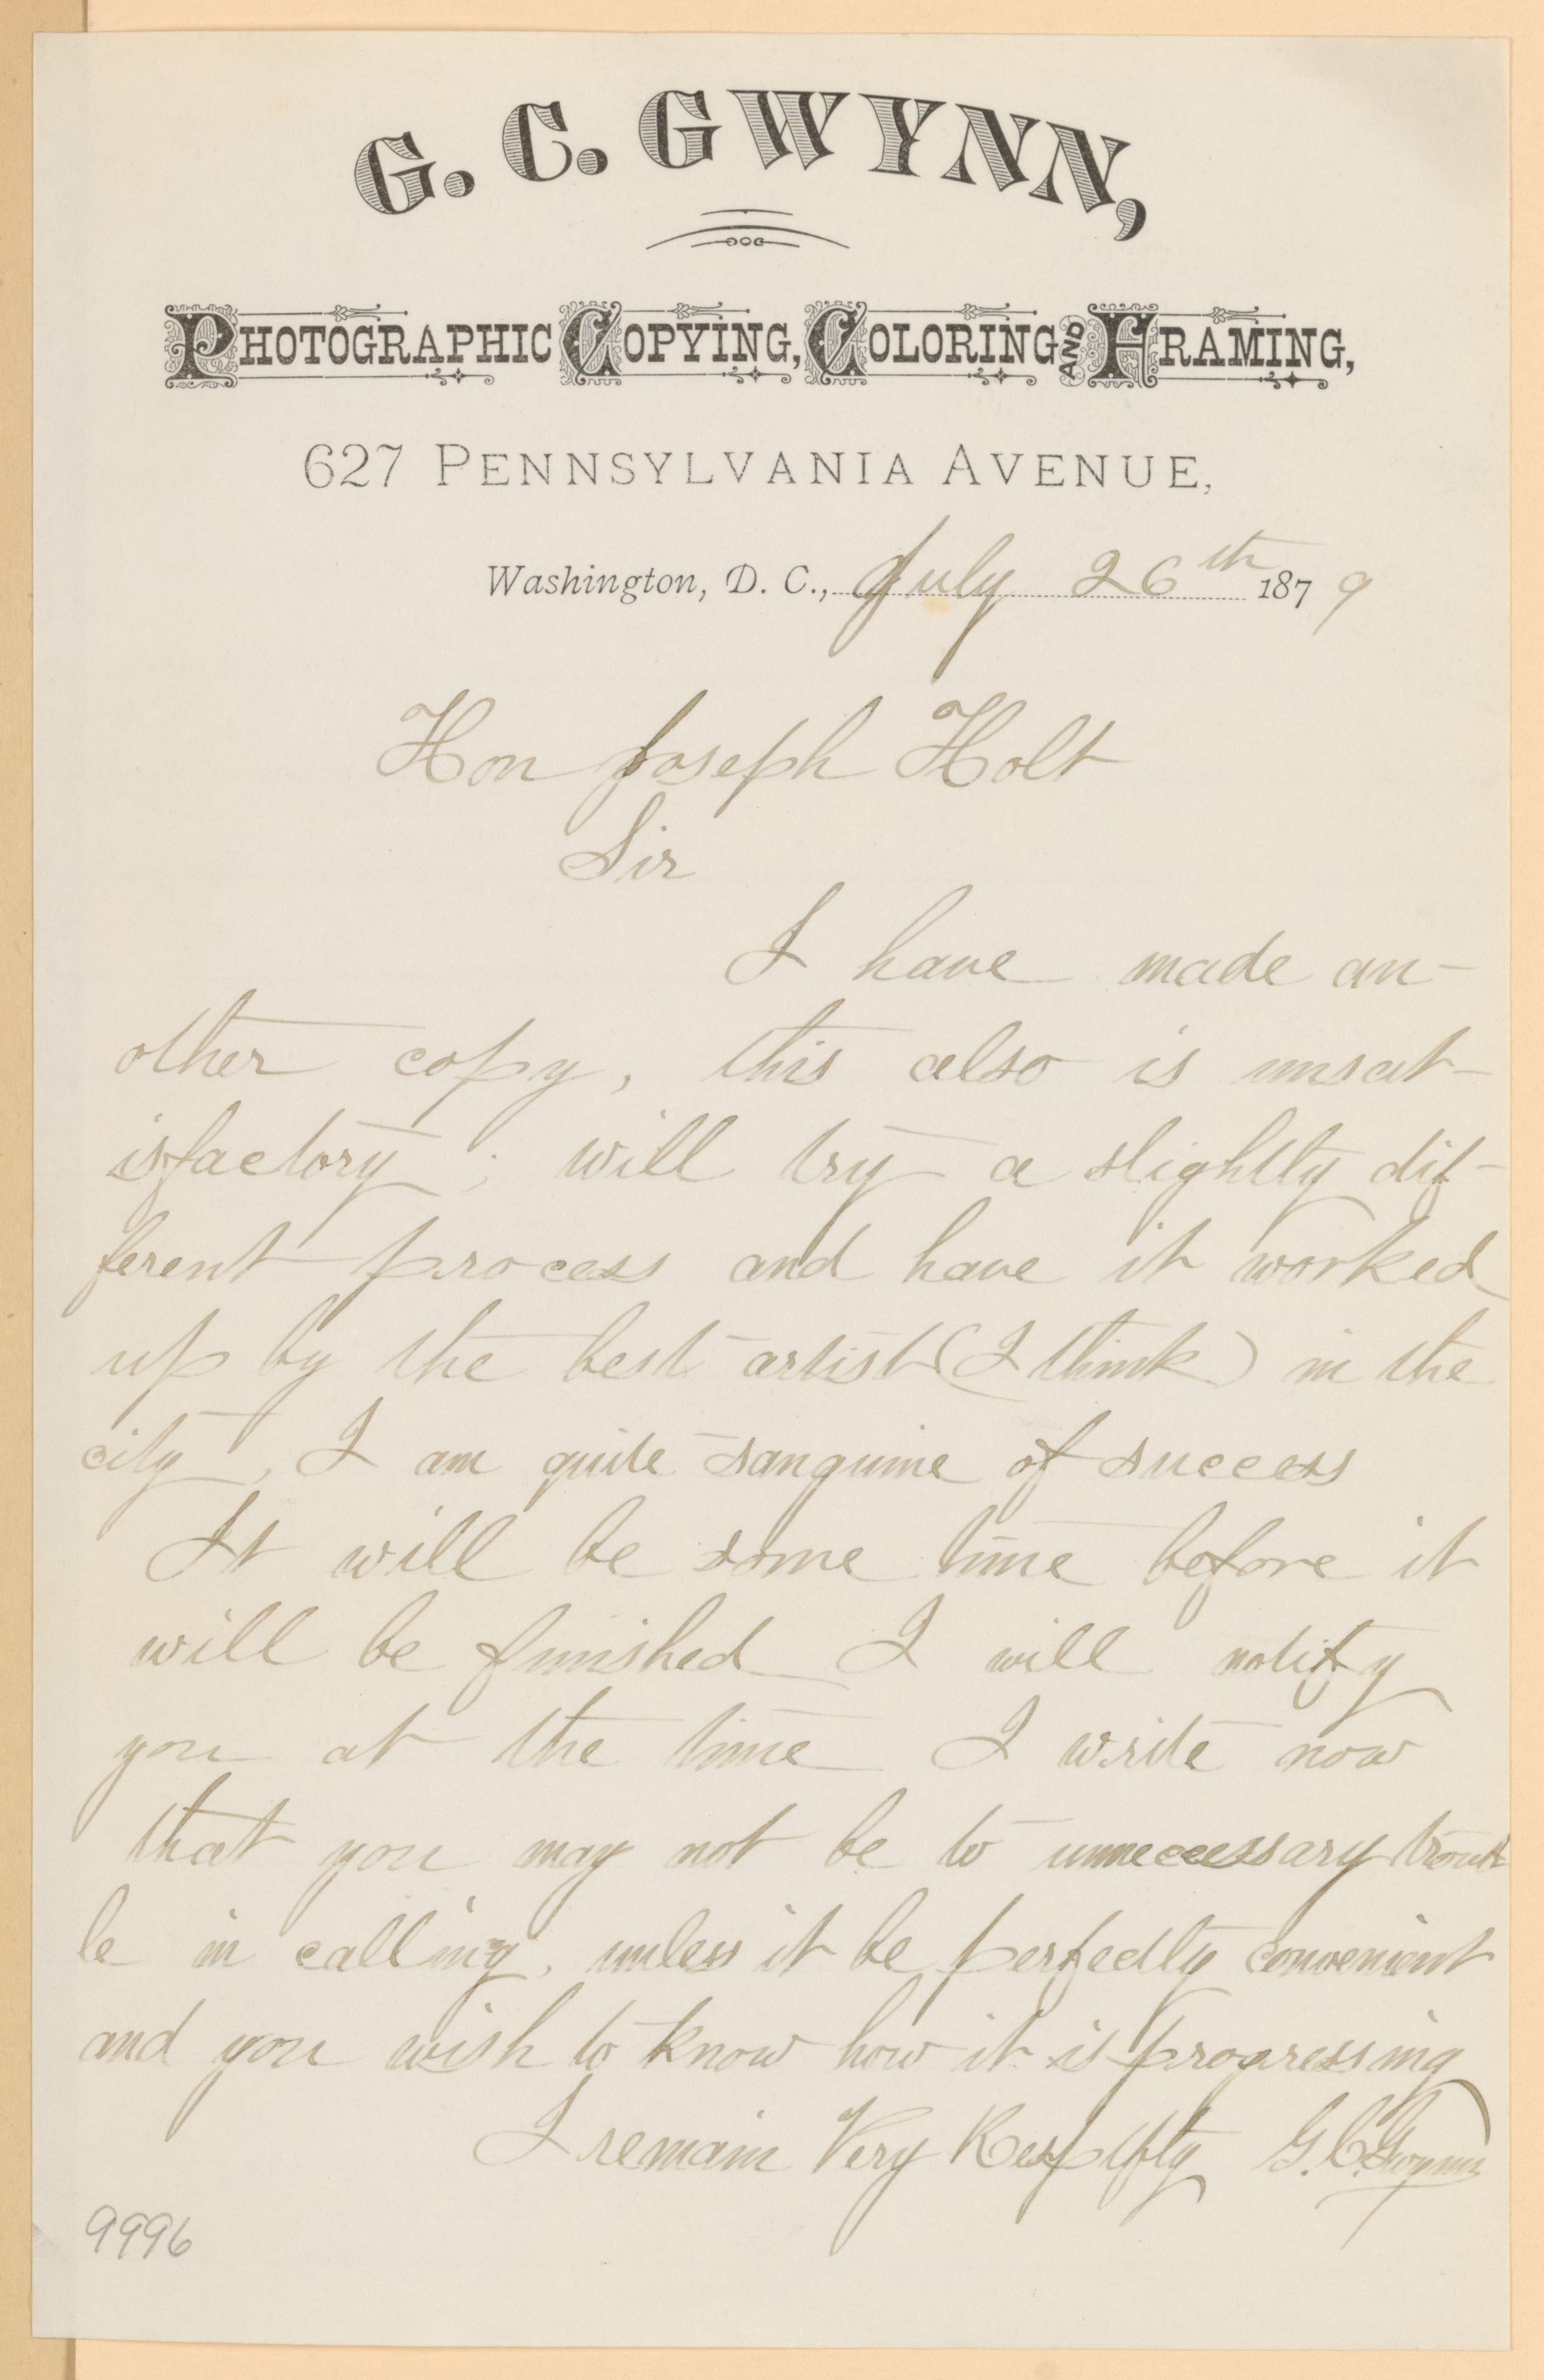 G. C. GWYNN,
PHOTOGRAPHIC COPYING, COLORING AND FRAMING,
627 PENNSYLVANIA AVENUE,
Washington, D. C., July 26th 1879
Hon Joseph Holt
Sir
I have made an-
other copy, this also is unsat-
isfactory; will try a slightly dif-
ferent process and have it worked
up by the best artist (I think) in the
city, I am quite sanguine of success
It will be some time before it
will be finished I will notify
you at the time I write now
that you may not be to unneccessary troub-
le in calling, unless it be perfectly convenient
and you wish to know how it is progressing
I remain Very Respctfly G. C. Gwynn
9996